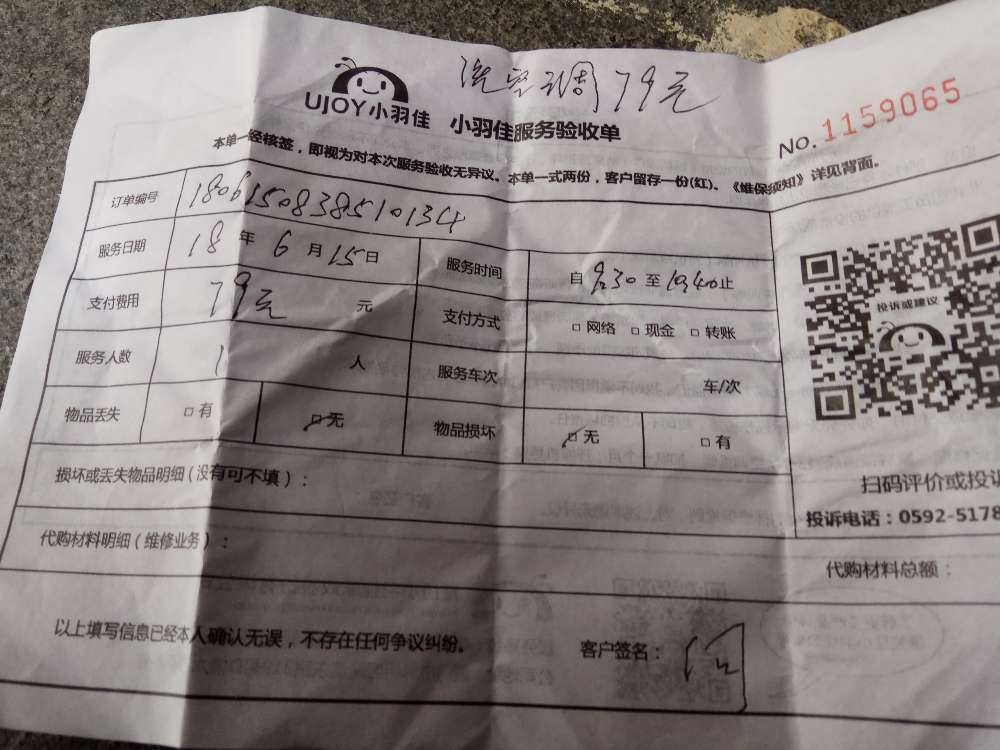 洗空调79元
UJOY小羽佳 小羽佳服务验收单
No.1159065
本单一经核签，即视为对本次服务验收无异议。本单一式两份，客户留存一份(红)。《维保须知》详见背面。
订单编号 1806150838510134
服务日期 18 年 6 月 15 日 服务时间 自 9:30 至 10:40 止
支付费用 79元 元 支付方式 □ 网络 □ 现金 □ 转账
服务人数 1 人 服务车次 车/次
物品丢失 □ 有 □ 无 物品损坏 □ 无 □ 有
投诉或建议
损坏或丢失物品明细（没有可不填）：
扫码评价或投诉
投诉电话：0592-5178
代购材料明细（维修业务）：
代购材料总额：
以上填写信息已经本人确认无误，不存在任何争议纠纷。
客户签名：